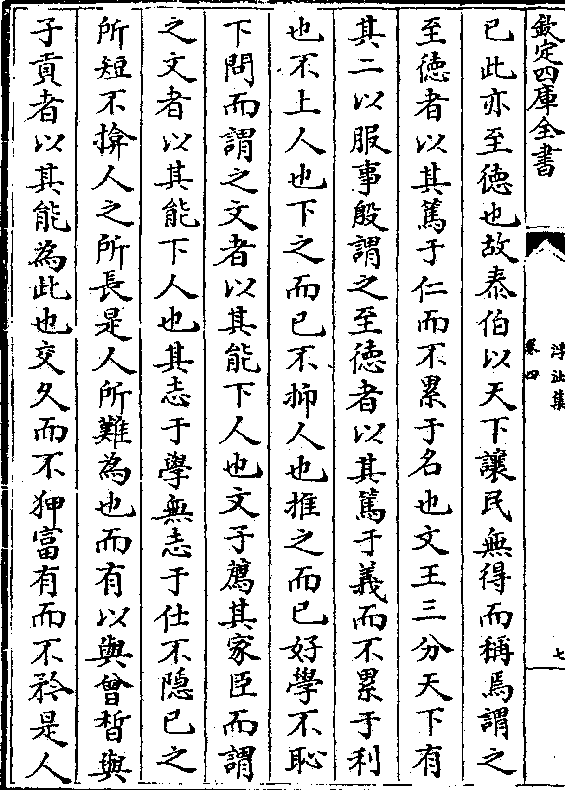 欽定四庫全書
浮沚集
卷四
七
已此亦至徳也故泰伯以天下讓民無得而稱焉謂之
至徳者以其篤于仁而不累于名也文王三分天下有
其二以服事殷謂之至徳者以其篤于義而不累于利
也不上人也下之而已不抑人也推之而已好學不恥
下問而謂之文者以其能下人也文子薦其家臣而謂
之文者以其能下人也其志于學無志于仕不隠已之
所短不揜人之所長是人所難為也而有以與曾晳與
子貢者以其能為此也交久而不狎富有而不矜是人